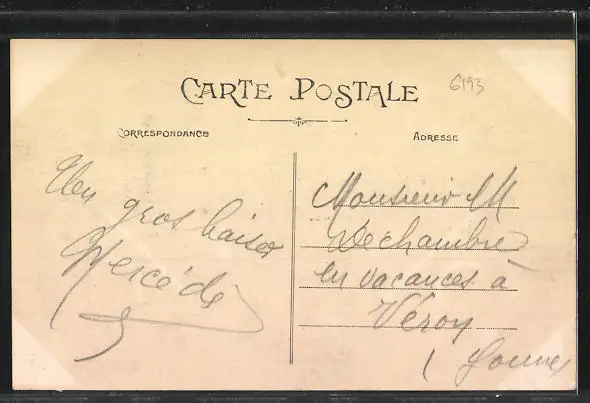 CARTE POSTALE
6193
CORRESPONDANCE
ADRESSE
Un gros baiser
Mercédès
Monsieur M
Dechambre
en vacances à
Véron
(Yonne)